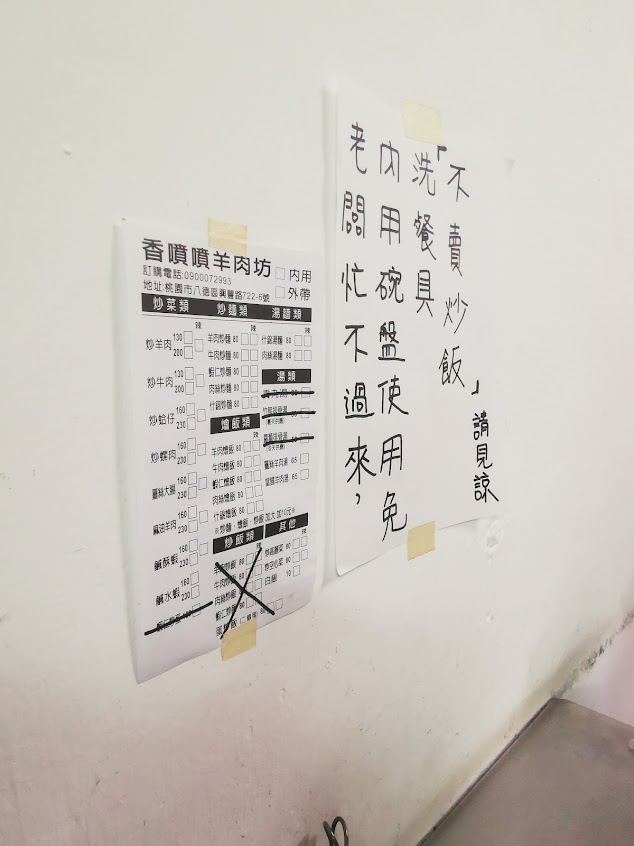 香噴噴羊肉坊
訂購電話:0900072993
地址:桃園市八德區興豐路722-6號
□內用
□外帶
炒菜類
辣
炒羊肉 130 200
炒牛肉 130 200
炒蛤仔 160 230
炒螺肉 160 230
薑絲大腸 160 230
麻油羊肉 160 230
鹹酥蝦 160 230
鹹水蝦 160 230
炒麵類
辣
羊肉炒麵 80
牛肉炒麵 80
蝦仁炒麵 80
肉絲炒麵 80
什錦炒麵 80
燴飯類
辣
羊肉燴飯 80
牛肉燴飯 80
蝦仁燴飯 80
肉絲燴飯 80
什錦燴飯 80
※炒麵、燴飯、炒飯 加大 加10元※
炒飯類
辣
羊肉炒飯 80
牛肉炒飯 80
肉絲炒飯 80
蝦仁炒飯 80
湯麵類
什錦湯麵 80
肉絲湯麵 80
湯類
薑絲羊肉湯 65
當歸羊肉湯 65
其他
炒高麗菜 80
炒空心菜 80
白飯 10
老闆忙不過來，
內用碗盤使用免
洗餐具
「不賣炒飯」
請見諒